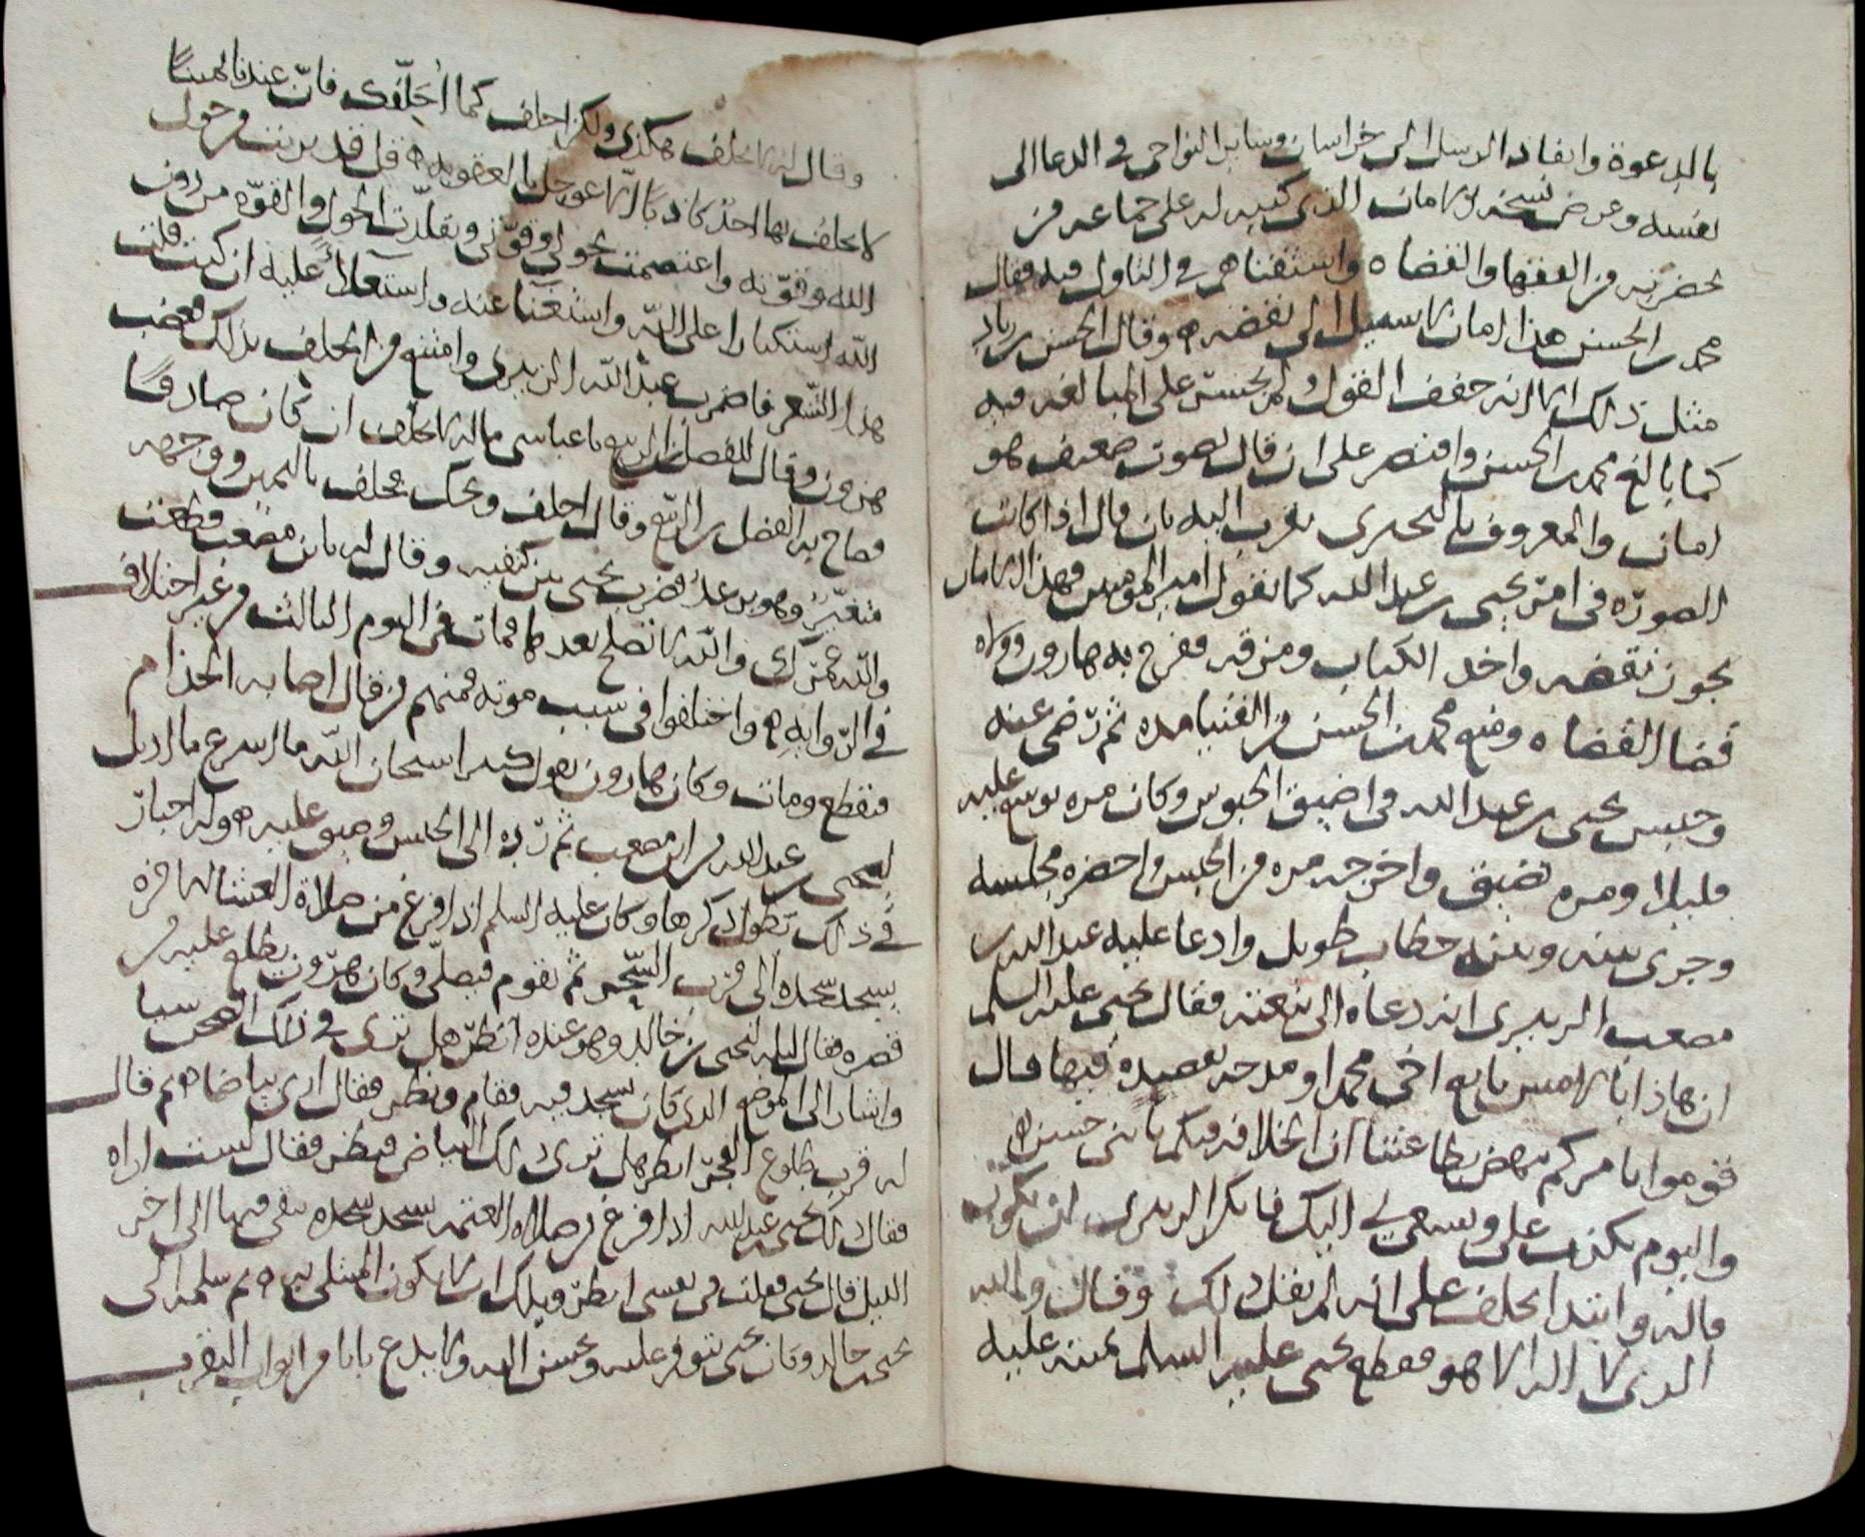 بالدعوة وانفاذ الرسل الى خراسان وساير النواحي في الدعا الى
نفسه وعرض نسخه الامان الذي كتبه له على جماعه من
بحضرته من الفقها والقضاه واستفتاهم في التاول فيه فقال
محمد بن الحسن هذا امان لا سبيل الى نقضه وقال الحسن بن زياد
مثل ذلك الا انه خفف القول ولم يحسن على المبالغه فيه
كما بالغ محمد بن الحسن واقتصر على ان قال بصوت ضعيف هو
امان والمعروف بالبحتري تقرب اليه بان قال اذا كانت
الصوره في امر يحيى بن عبد الله كما تقول امير المومنين فهذا الامان
يجوز نقضه واخذ الكتاب ومزقه ففرح به هارون وولاه
قضا القضاه ومنع محمد بن الحسن من الفتيا مده ثم رضي عنه
وحبس يحيى بن عبد الله في اضيق الحبوس وكان مره يوسع عليه
قليلا ومره يضيق واخرجه مره من الحبس واحضره مجلسه
وجرى بينه وبينه خطاب طويل وادعا عليه عبد الله بن
مصعب الزبيري انه دعاه الى بيعته فقال يحيى عليه السلم
ان هاذا بالامس بايع اخي محمدا ومدحه بقصيدة فيها قال
قوموا بامركم ننهض بطاعتنا ان الخلافه فيكم يا بني حسن
واليوم يكذب علي ويسعى بي اليك فانكر الزبيري ان يكون
قاله وابتدا يحلف على انه لم يقل ذلك وقال والله
الذي لا اله الا هو فقطع يحيى عليه السلم يمينه عليه
وقال له لا تحلف هكذى ولكن احلف كما احلّفك فان عندنا يمينا
لا يحلف بها احد كاذبا الا عوجل بالعقوبه قل قد برئت من حول
الله وقوته واعتصمت بحولي وقوتي وتقلدت الحول والقوه من دون
الله استكبارا على الله واستغنا عنه واستعلاءً عليه ان كنت قلت
هذا الشعر فاضرب عبد الله الزبيري وامتنع من الحلف بذلك فغضب
هرون وقال للفضل بن الربيع يا عباسي ماله لا يحلف ان كان صادقا
فصاح به الفضل بن الربيع وقال احلف ويحك فحلف باليمين ووجهه
متغير وهو يرعد فضرب يحيى بين كتفيه وقال له يا بن مصعب قطعت
والله عمرك والله لا تفلح بعدها فمات في اليوم الثالث من غير اختلاف
في الروايه واختلفوا في سبب موته فمنهم من قال اصابه الجذام
فتقطع ومات وكان هارون يقول كثيرا سبحان الله ما اسرع ما اديل
ليحيى بن عبد الله من ابن مصعب ثم رده الى الحبس وضيق عليه وله اخبار
في ذلك تطول ذكرها وكان عليه السلم اذا فرغ من صلاة العشا الاخره
يسجد سجده الى قرب السحر ثم يقوم فيصلي وكان هرون يطلع عليه من
قصره فقال ليله ليحيى بن خالد وهو عنده انظر هل ترى في ذلك الصحن شيا
واشار الى الموضع الذي كان يسجد فيه فقام ونظر فقال ارى بياضا ثم قال
له قرب طلوع الفجر انظر هل ترى ذلك البياض فنظر فقال لست اراه
فقال ذلك يحيى بن عبد الله اذا فرغ من صلاه العتمه سجد سجده يبقى فيها الى اخر
الليل قال يحيى فقلت في نفسي انظر ويلك ان لا تكون المبتلى به ثم سلمه الى
يحيى بن خالد وكان يحيى يتوفر عليه ويحسن اليه ولا يدع بابا من ابواب التقرب